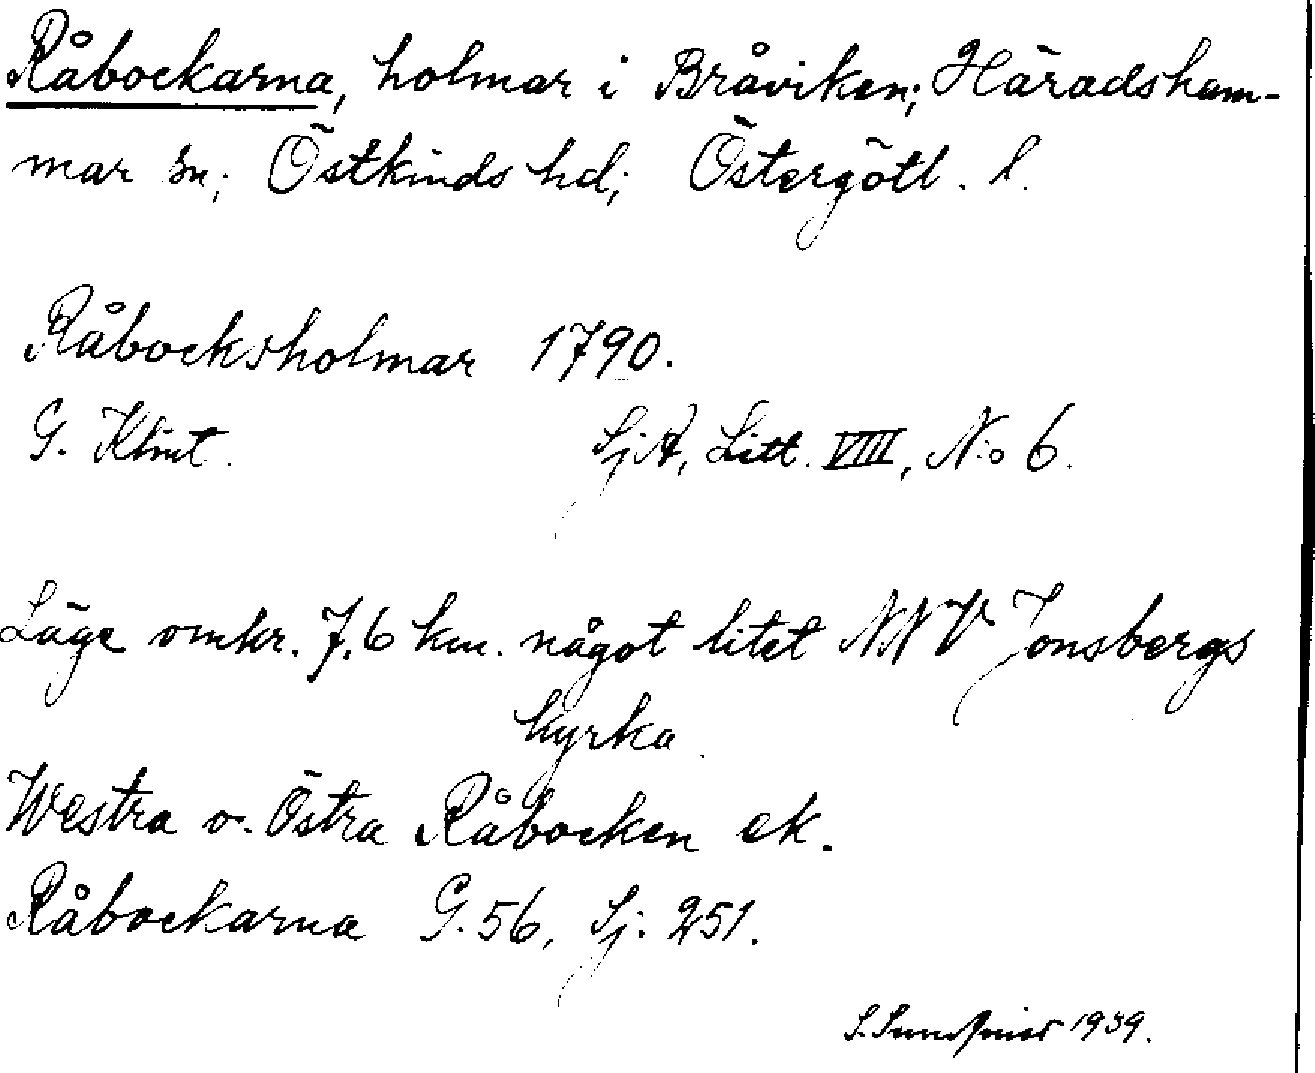 Råbockarna, holmar i Bråviken; Häradsham-
mar sn; Östkinds hd; Östergötl. l.
Råbocksholmar 1790.
G. Klint. SjA, Litt. VIII, N:o 6.
Läge omkr. 7,6 km. något litet NNV Jonsbergs
kyrka.
Westra o. Östra Råbocken ek.
Råbockarna G. 56, Sj: 251.
S. 1939.